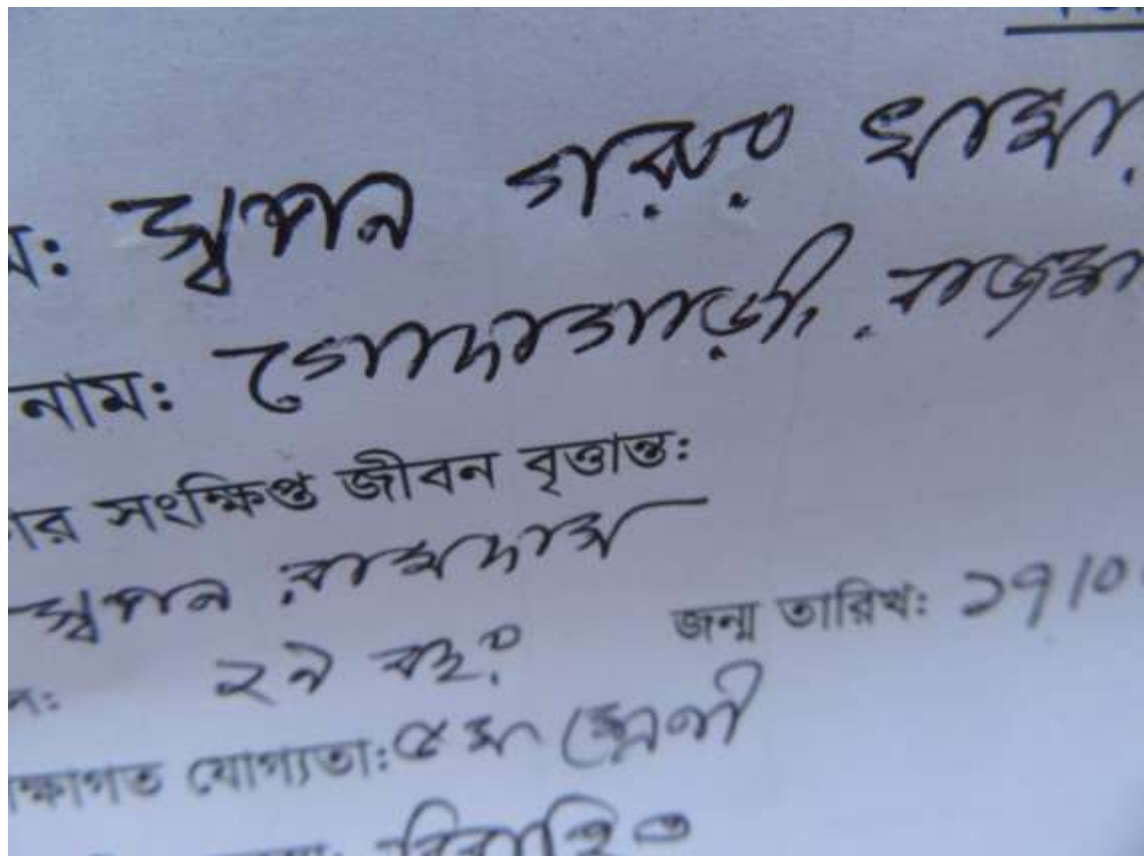 ম: স্বপন গরুর খামার
নাম: গোদাগাড়ী, রাজশা
ার সংক্ষিপ্ত জীবন বৃত্তান্ত:
স্বপন রামদাস
স: ২৯ বছর জন্ম তারিখ: ১৭/০
ক্ষাগত যোগ্যতা: ৫ম শ্রেণী
বিবাহিত